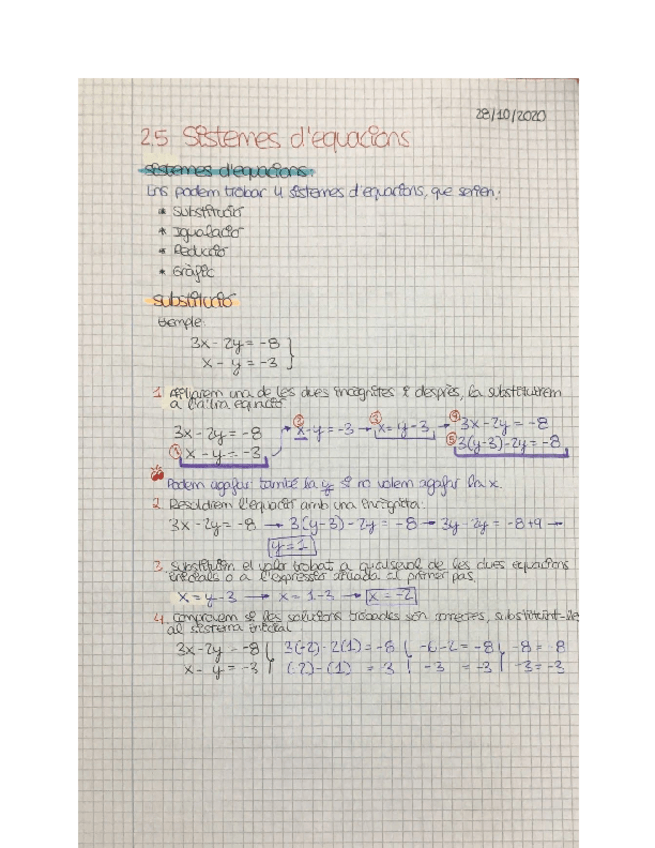 28/10/2020
2.5 Sistemes d'equacions
Sistemes d'equacions:
Ens podem trobar 4 sistemes d'equacions, que serien:
* Substitució
* Igualació
* Reducció
* Gràfic
Substitució
Exemple:
3x - 2y = -8 }
x - y = -3
1. Aïllarem una de les dues incògnites i després, la substituirem
a l'altra equació.
3x - 2y = -8 ② x - y = -3 → ③ x = y - 3 → ④ 3x - 2y = -8
① x - y = -3 ⑤ 3(y-3) - 2y = -8
Podem agafar també la y si no volem agafar la x.
2. Resoldrem l'equació amb una incògnita.
3x - 2y = -8 → 3(y-3) - 2y = -8 → 3y - 2y = -8 + 9 →
y = 1
3. Substituïm el valor trobat a qualsevol de les dues equacions
inicials o a l'expressió aïllada al primer pas.
x = y - 3 → x = 1 - 3 → x = -2
4. Comprovem si les solucions trobades són correctes, substituint-les
al sistema inicial.
3x - 2y = -8 { 3(-2) - 2(1) = -8 { -6 - 2 = -8 { -8 = -8
x - y = -3 (-2) - (1) = 3 -3 = -3 -3 = -3